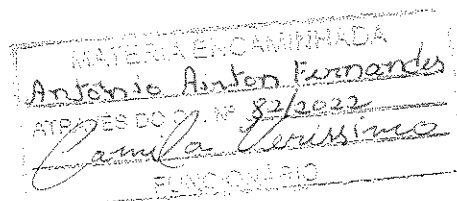 MATÉRIA ENCAMINHADA
Antônio Airton Fernandes
ATRAVÉS DO Nº 82/2022
Camila Verissimo
FUNCIONÁRIO